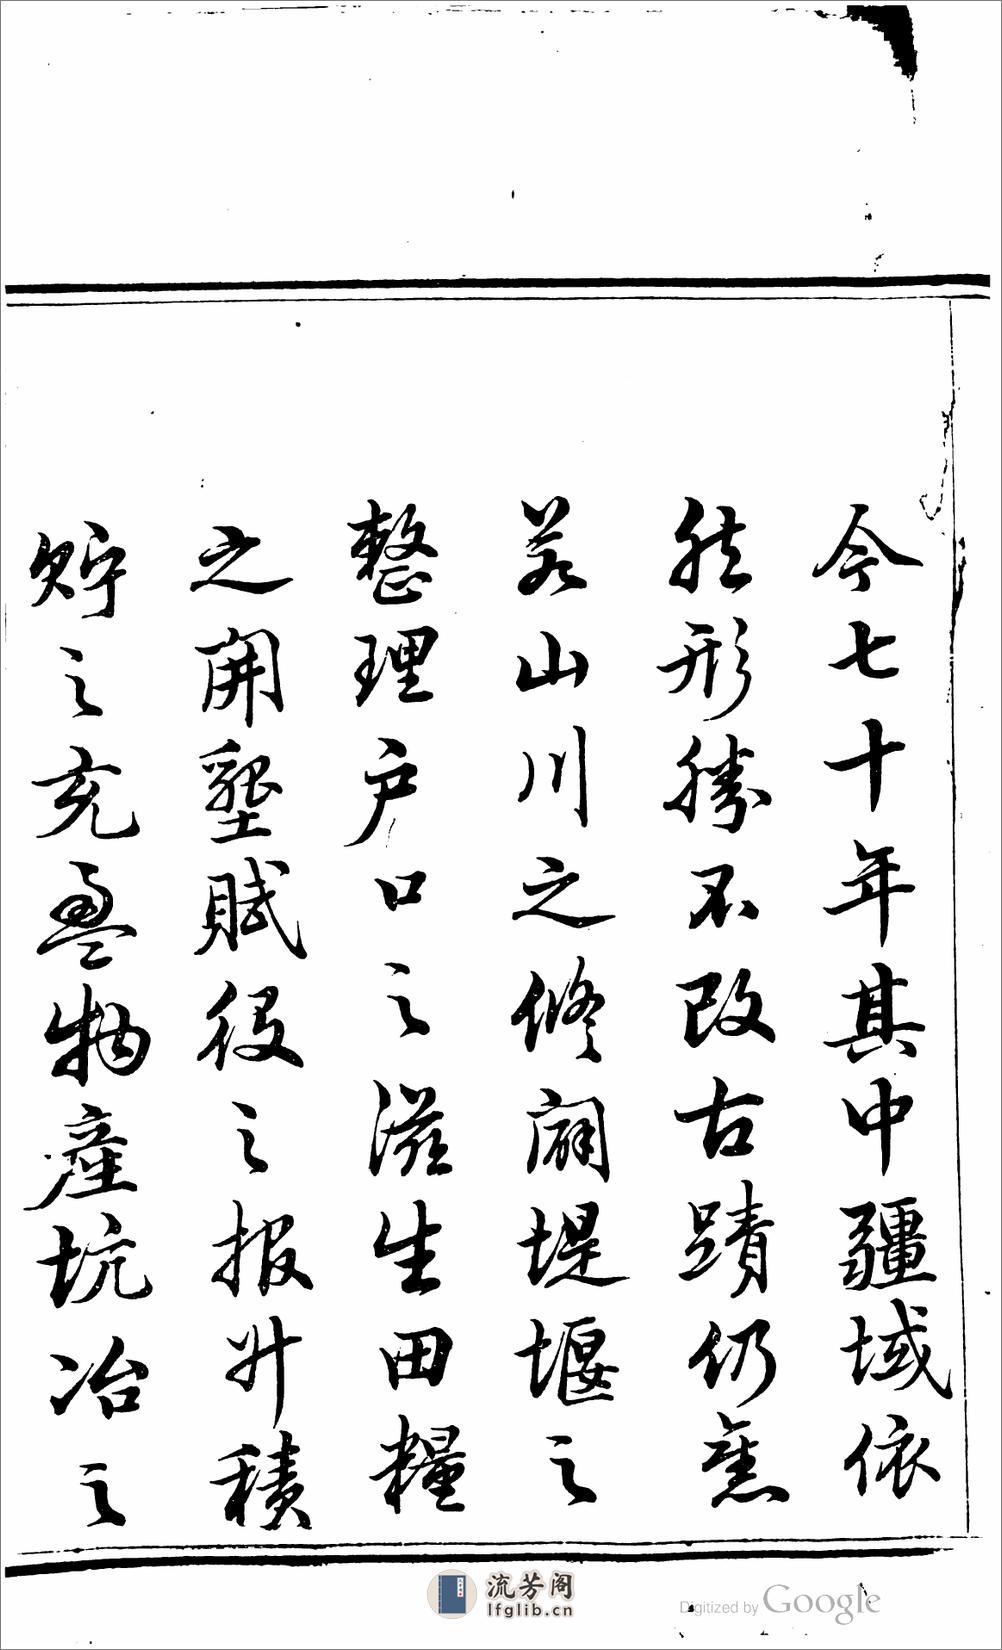 今七十年其中疆域依
然形勝不改古蹟仍舊
若山川之修闢堤堰之
整理戶口之滋生田糧
之開墾賦役之報升積
貯之充盈物產坑冶之
流芳阁
lfglib.cn
Digitized by Google